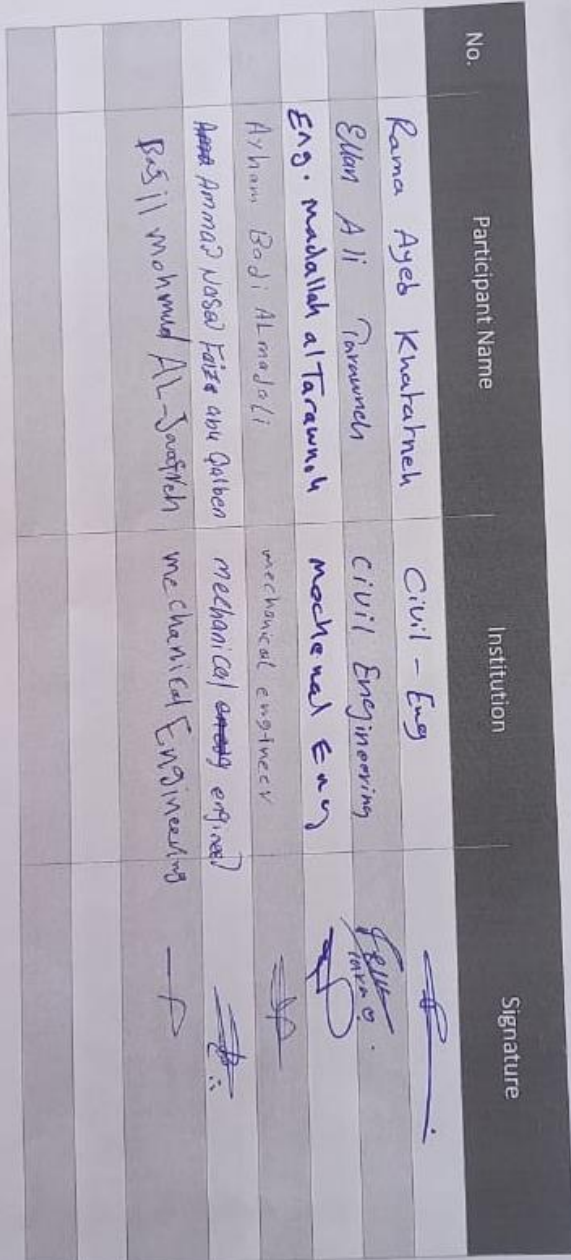 No. Participant Name Institution Signature
Rama Ayeb Khatatneh Civil - Eng
Ellan Ali Tarawneh Civil Engineering
Eng. madallah al Tarawneh Mochenal Eng
Ayham Badi ALmadali mechanical engineer
Ammad Nasad Faize abu Qalben mechanical engineed
Basil mohmud AL-Jaafreh mechanical Engineering